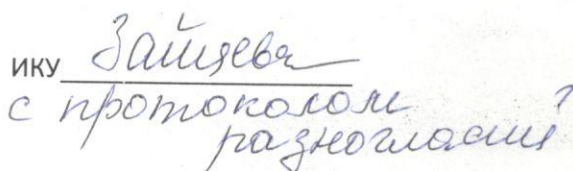 ику Зайцева
с протоколом
разногласий